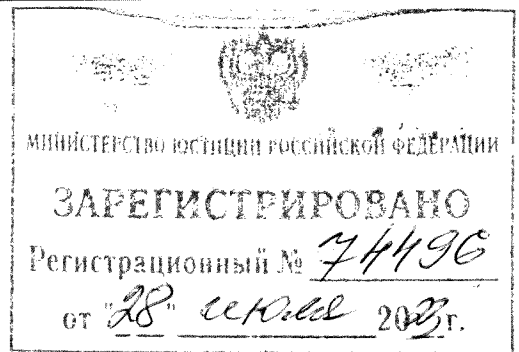 МИНИСТЕРСТВО ЮСТИЦИИ РОССИЙСКОЙ ФЕДЕРАЦИИ
ЗАРЕГИСТРИРОВАНО
Регистрационный № 74496
от "28" июля 2023г.